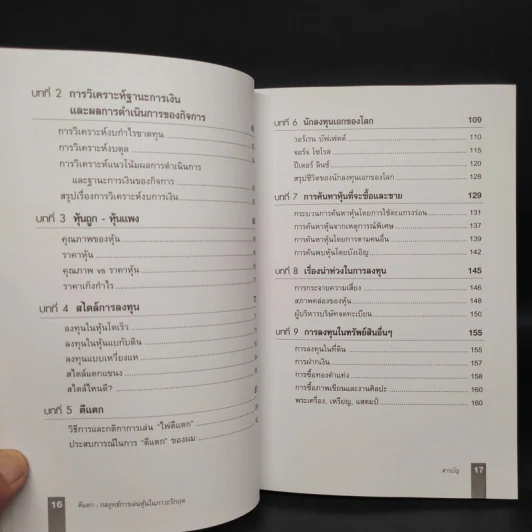 บทที่ 2 การวิเคราะห์ฐานะการเงิน
และผลการดำเนินการของกิจการ
การวิเคราะห์งบกำไรขาดทุน
การวิเคราะห์งบดุล
การวิเคราะห์แนวโน้มผลการดำเนินการ
และฐานะการเงินของกิจการ
สรุปเรื่องการวิเคราะห์งบการเงิน
บทที่ 3 หุ้นถูก - หุ้นแพง
คุณภาพของหุ้น
ราคาหุ้น
คุณภาพ vs ราคาหุ้น
ราคาเก็งกำไร
บทที่ 4 สไตล์การลงทุน
ลงทุนในหุ้นโตเร็ว
ลงทุนในหุ้นแบกับดิน
ลงทุนแบบเหวี่ยงแห
สไตล์แตกแขนง
สไตล์ไหนดี?
บทที่ 5 ตีแตก
วิธีการและกติกาการเล่น "ไพ่ตีแตก"
ประสบการณ์ในการ "ตีแตก" ของผม
16 ตีแตก : กลยุทธ์การเล่นหุ้นในภาวะวิกฤต
บทที่ 6 นักลงทุนเอกของโลก 109
วอร์เรน บัฟเฟตต์ 110
จอร์จ โซรอส 115
ปีเตอร์ ลินช์ 120
สรุปชีวิตของนักลงทุนเอกของโลก 128
บทที่ 7 การค้นหาหุ้นที่จะซื้อและขาย 129
กระบวนการค้นหาหุ้นโดยการใช้ตะแกรงร่อน 131
การค้นหาหุ้นจากเหตุการณ์พิเศษ 137
การค้นหาหุ้นโดยการตามคนอื่น 139
การค้นพบหุ้นโดยบังเอิญ 142
บทที่ 8 เรื่องน่าห่วงในการลงทุน 145
การกระจายความเสี่ยง 146
สภาพคล่องของหุ้น 148
ผู้บริหารบริษัทจดทะเบียน 150
บทที่ 9 การลงทุนในทรัพย์สินอื่นๆ 155
การลงทุนในที่ดิน 155
การฝากเงิน 157
การซื้อทองคำแท่ง 158
การซื้อภาพเขียนและงานศิลปะ 160
พระเครื่อง, เหรียญ, แสตมป์ 160
สารบัญ 17